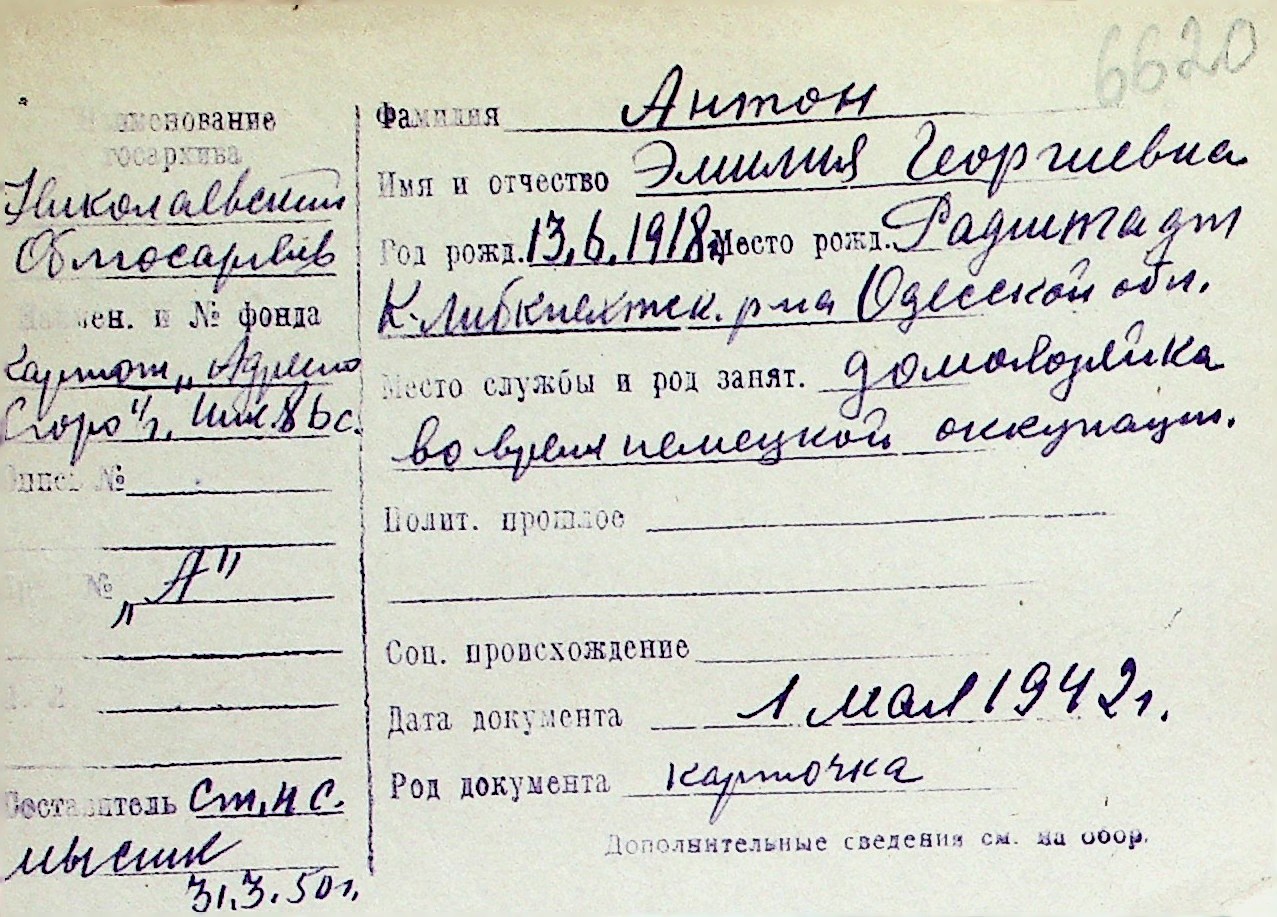 6620
Наименование
госархива
Николаевский
Облгосархив
Наимен. и № фонда
Картот. „Адресно
Бюро"
Опись №
№ „А"
Составитель Ст. н. с.
31.3.50 г.
Фамилия Антон
Имя и отчество Эмилия Георгиевна
Год рожд. 13.6.1918 г. Место рожд. Радштадт
К. Либкнехтск. р-на Одесской обл.
Место службы и род занят. домохозяйка
во время немецкой оккупации.
Полит. прошлое
Соц. происхождение
Дата документа 1 мая 1942 г.
Род документа карточка
Дополнительные сведения см. на обор.